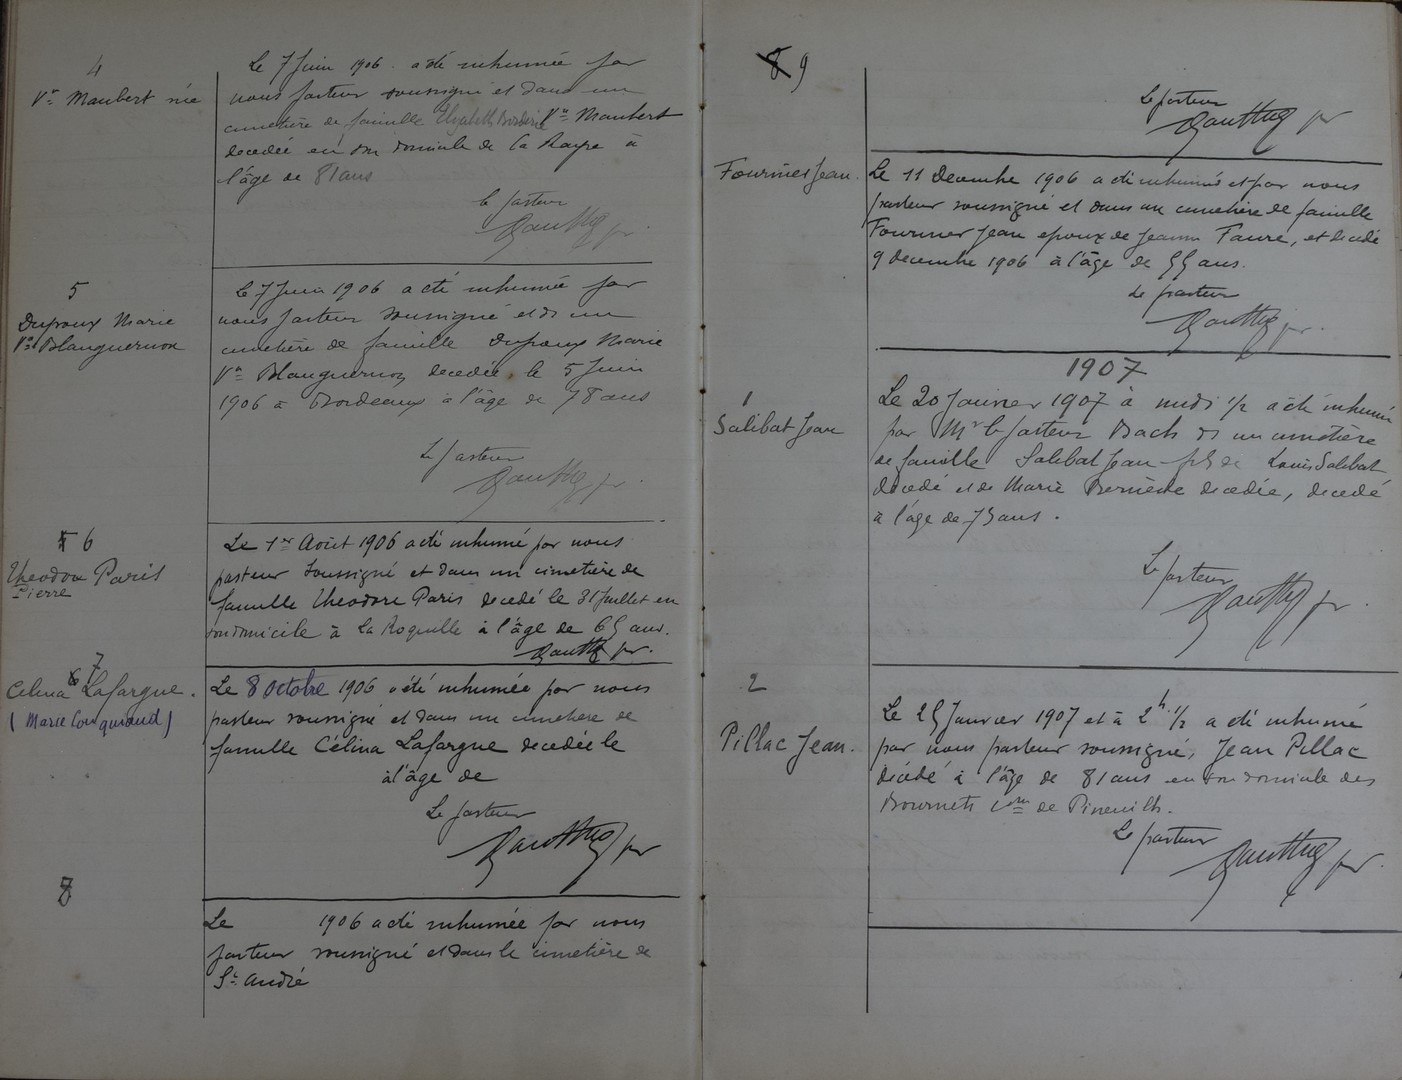 4
Vve Maubert née
Le 7 Juin 1906 a été inhumée par
nous pasteur soussigné et dans un
cimetière de famille Elizabeth Borderie Vve Maubert
decedée en son domicile de La Raye à
l'âge de 81 ans
le pasteur
Gautthey pr.
5
Dupoux Marie
Vve Blanguernon
Le 7 Juin 1906 a été inhumée par
nous pasteur soussigné et ds un
cimetière de famille Dupoux Marie
Vve Blanguernon decedée le 5 Juin
1906 à Bordeaux à l'âge de 78 ans
Le pasteur
Gautthey pr.
6
Theodore Paris
Pierre
Le 1er Août 1906 a été inhumé par nous
pasteur soussigné et dans un cimetière de
famille Theodore Paris decedé le 31 Juillet en
son domicile à La Roquille à l'âge de 65 ans.
Gautthey pr.
7
Celina Lafargue.
(Marie Couquiaud)
Le 8 octobre 1906 a été inhumée par nous
pasteur soussigné et dans un cimetiere de
famille Célina Lafargue decedée le
à l'âge de
Le pasteur
Gautthey pr
8
Le 1906 a été inhumée par nous
pasteur soussigné et dans le cimetière de
St André
8 9
Le pasteur
Gautthey pr
Fournier Jean.
Le 11 Decembre 1906 a été inhumé et par nous
pasteur soussigné et dans un cimetière de famille
Fournier Jean epoux de Jeanne Faure, et decedé
9 decembre 1906 à l'âge de 55 ans.
Le pasteur
Gautthey pr.
1907
1
Salibat Jean
Le 20 Janvier 1907 à midi 1/2 a été inhumé
par Mr le pasteur Bach ds un cimetière
de famille Salibat Jean fils de Louis Salibat
decedé et de Marie decedée, decedé
à l'âge de 75 ans.
Le pasteur
Gautthey pr.
2
Pillac Jean.
Le 25 Janvier 1907 et à 2h. 1/2 a été inhumé
par nous pasteur soussigné, Jean Pillac
décédé à l'âge de 81 ans en son domicile des
Bournets Cne de Pineuilh.
Le pasteur
Gautthey pr.